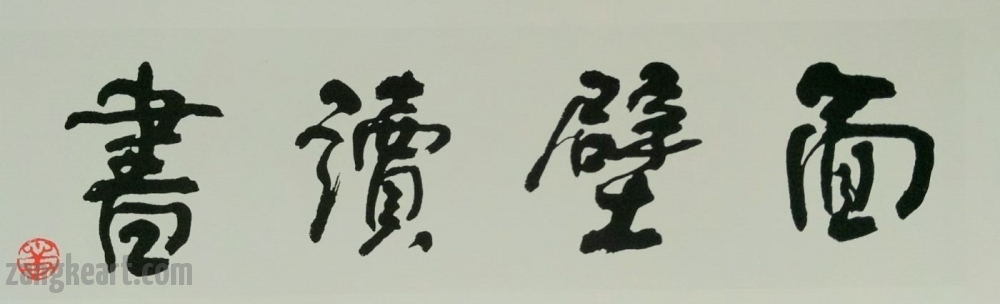 面壁讀書
zongkeart.com